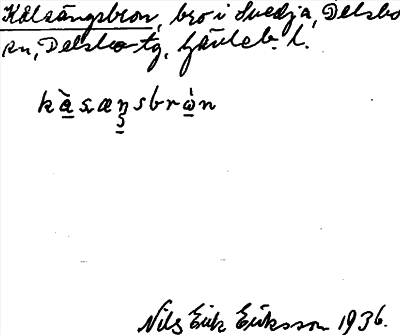 Kålsängsbron, bro i Svedja, Delsbo
sn, Delsbo tg, Gävleb. l.
kå̀sænsbrὼn
Nils Erik Eriksson 1936.